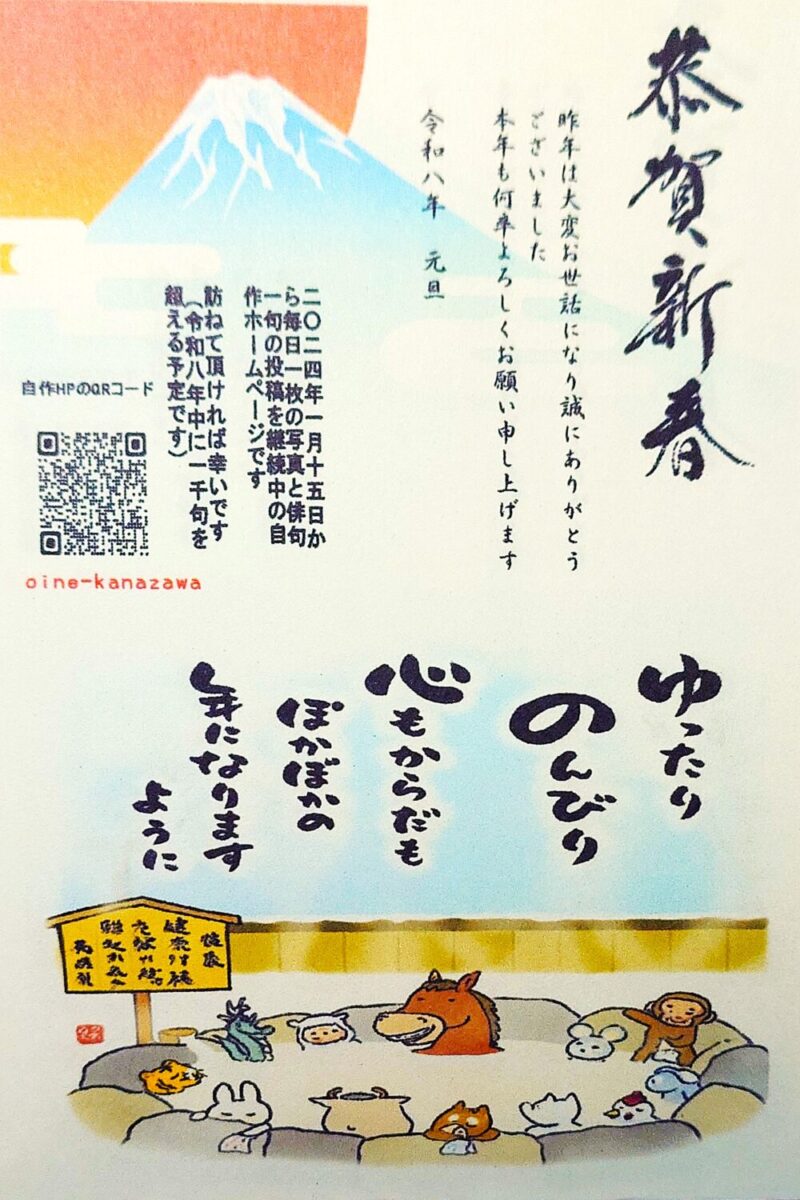 恭賀新春
昨年は大変お世話になり誠にありがとう
ございました
本年も何卒よろしくお願い申し上げます
令和八年　元旦
二〇二四年一月十五日か
ら毎日一枚の写真と俳句
一句の投稿を継続中の自
作ホームページです
訪ねて頂ければ幸いです
（令和八年中に一千句を
超える予定です）
自作HPのQRコード
oine-kanazawa
ゆったり
のんびり
心もからだも
ぽかぽかの
年になります
ように